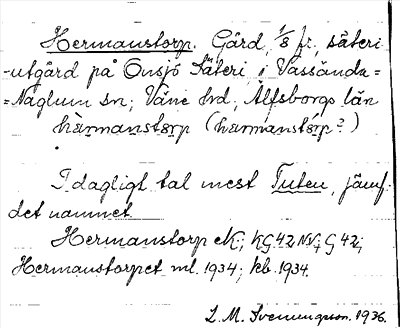 Hermanstorp. Gård, 1/8 fr, säteri-
utgård på Onsjö Säteri i Vassända=
=Naglum sn; Väne hrd, Älfsborgs län
hàrmanstɵrp (hàrmanstɵ́rp?)
I dagligt tal mest Tuten, jämf.
det namnet.
Hermanstorp eK; kG 42 NV; G 42;
Hermanstorpet ml. 1934; kb. 1934.
L. M. Svenungsson. 1936.